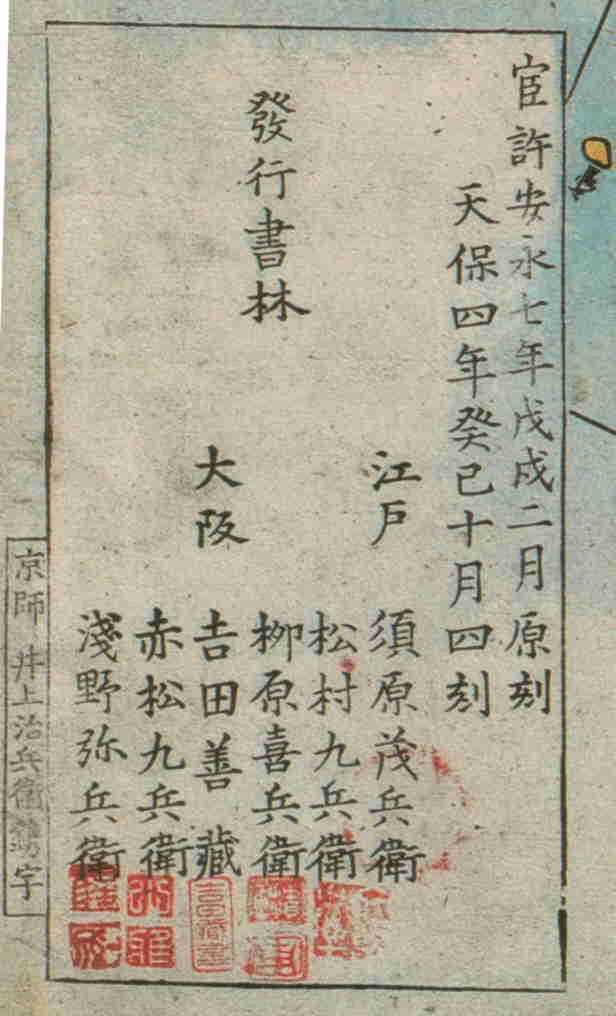 官許安永七年戊戌二月原刻
天保四年癸巳十月四刻
發行書林
江戸
須原茂兵衛
松村九兵衛
大阪
柳原喜兵衛
吉田善藏
赤松九兵衛
淺野弥兵衛
京師 井上治兵衛 字